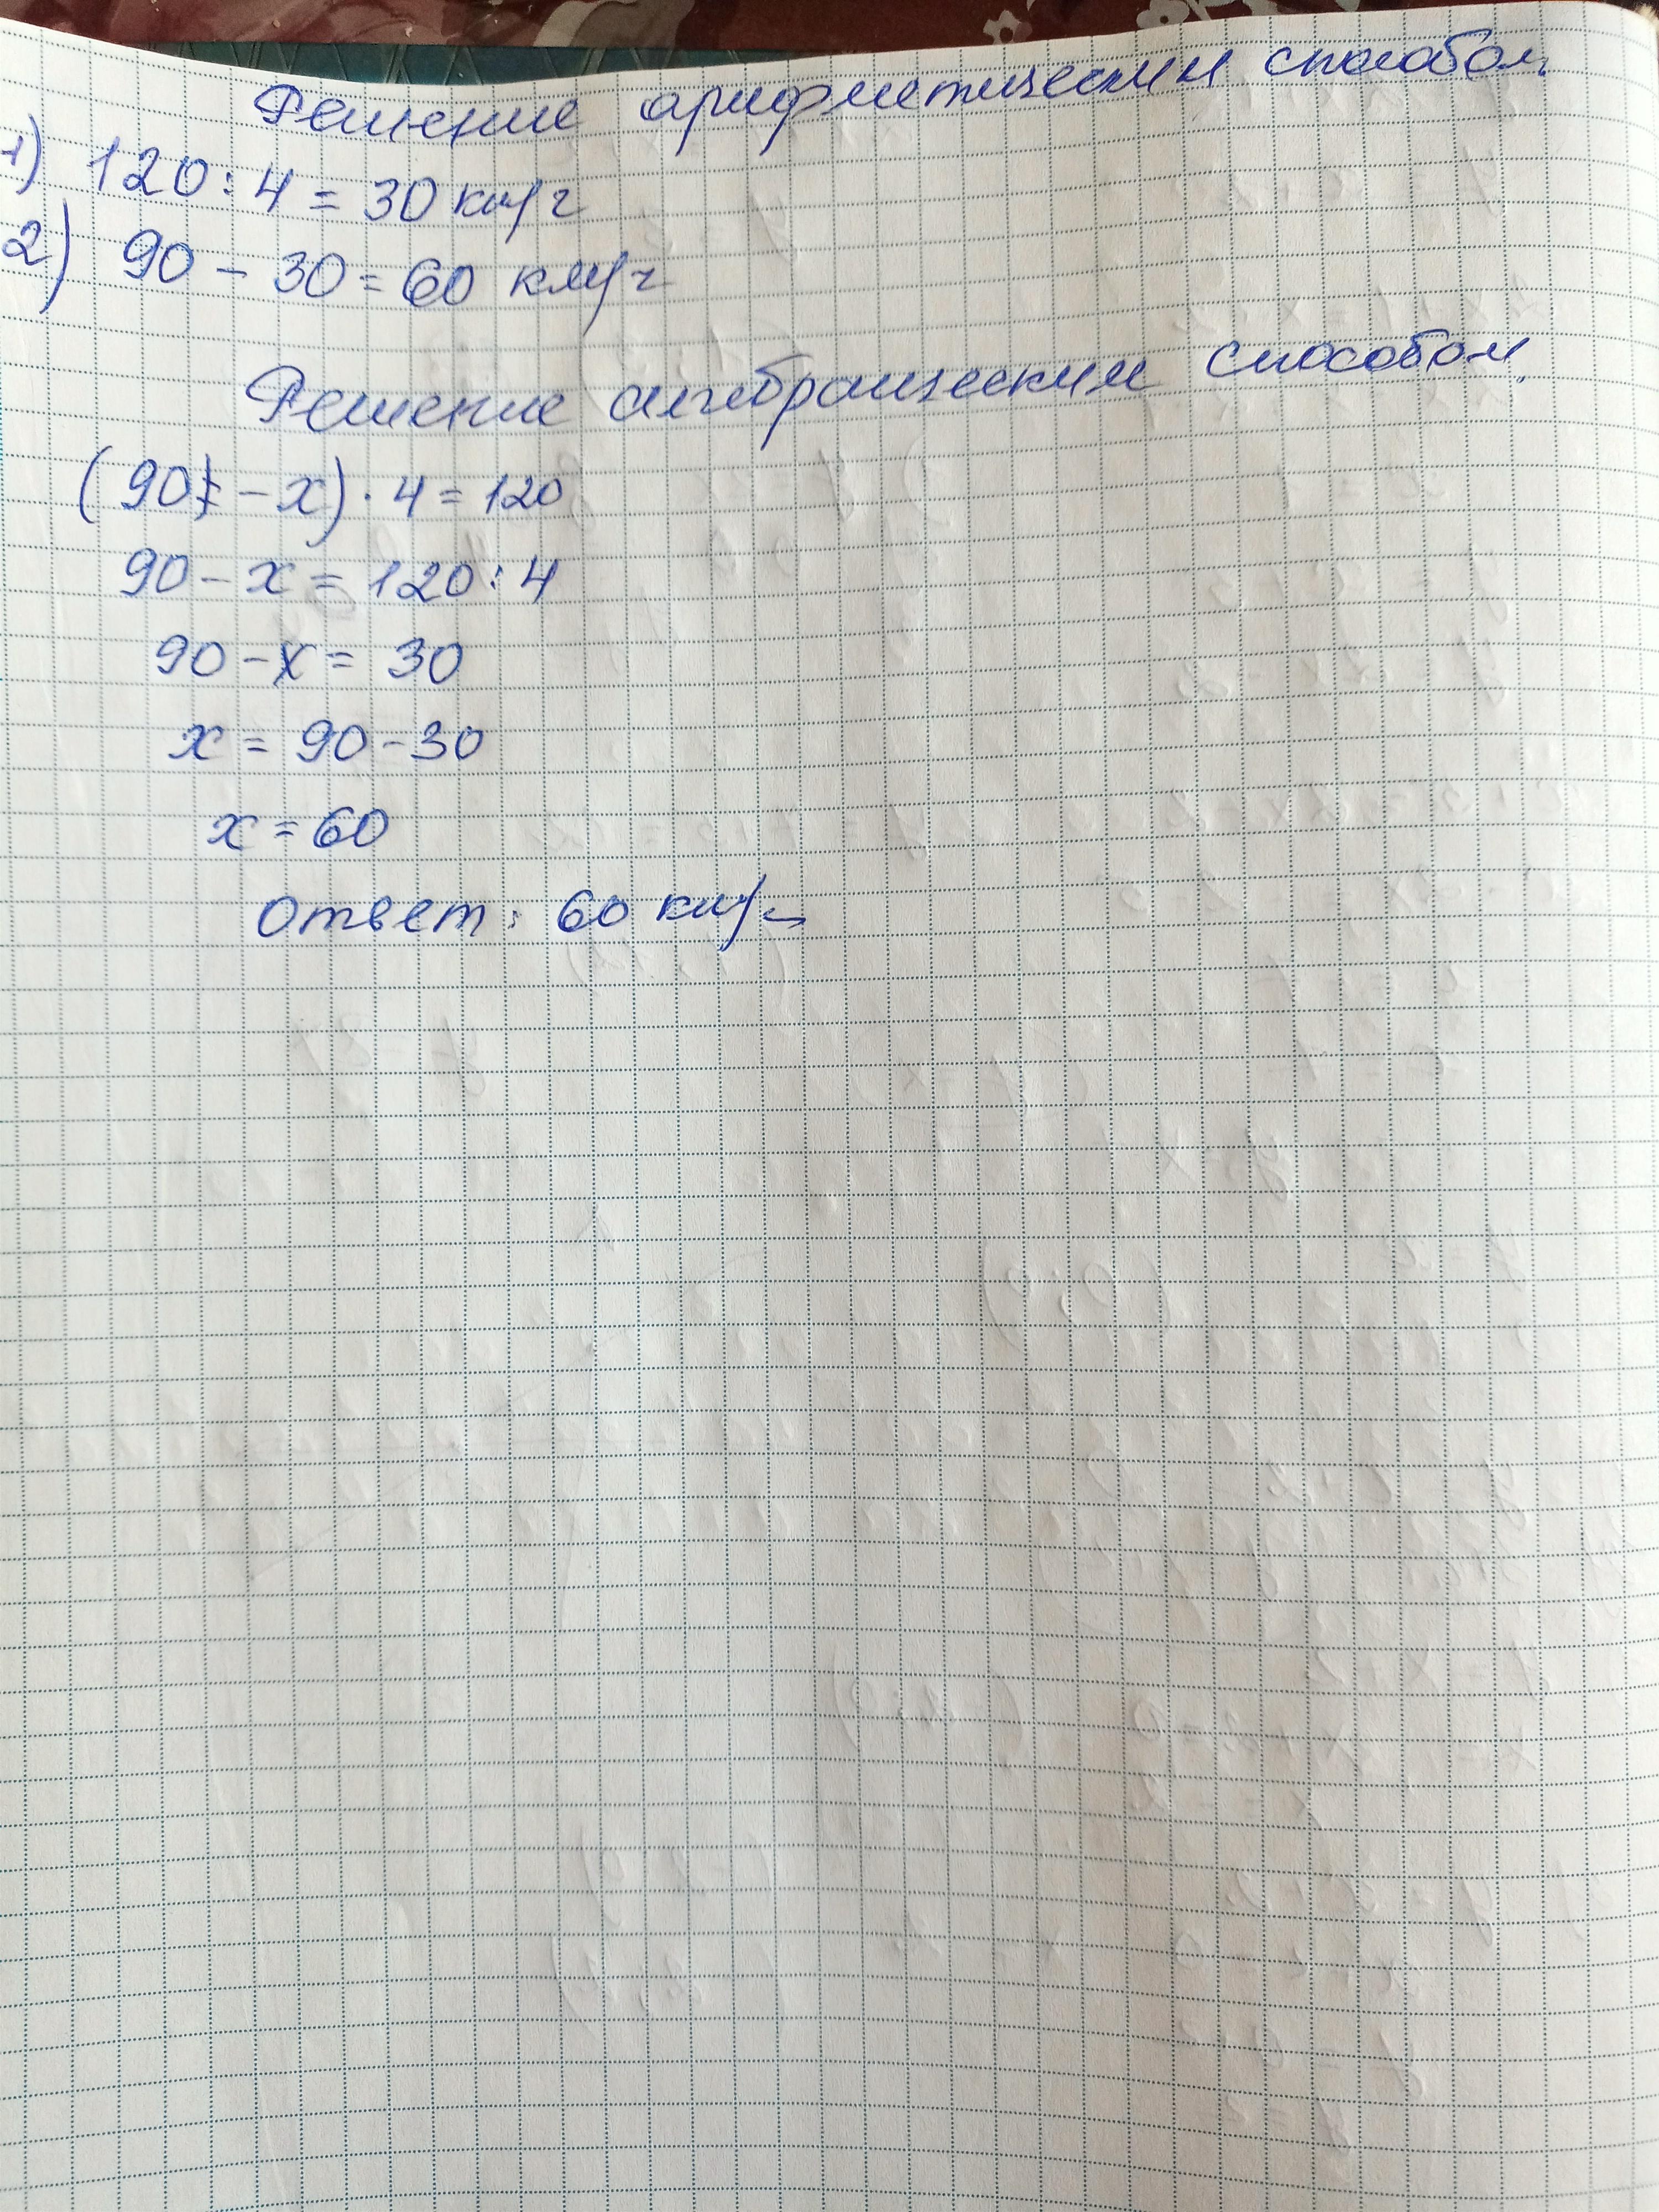 Решение арифметическим способом.
1) 120 : 4 = 30 км/ч
2) 90 - 30 = 60 км/ч
Решение алгебраическим способом.
(90 - x) · 4 = 120
90 - x = 120 : 4
90 - x = 30
x = 90 - 30
x = 60
Ответ: 60 км/ч